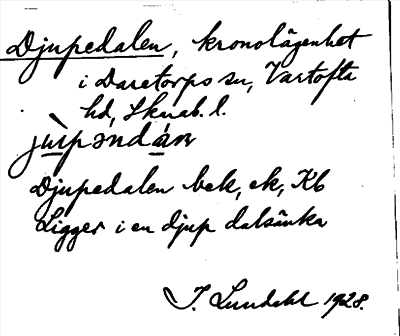 Djupedalen, kronolägenhet
i Daretorps sn, Vartofta
hd, Skarab. l.
jùpəndán
Djupedalen bek, ek, Kb
Ligger i en djup dalsänka
I. Lundahl 1928.